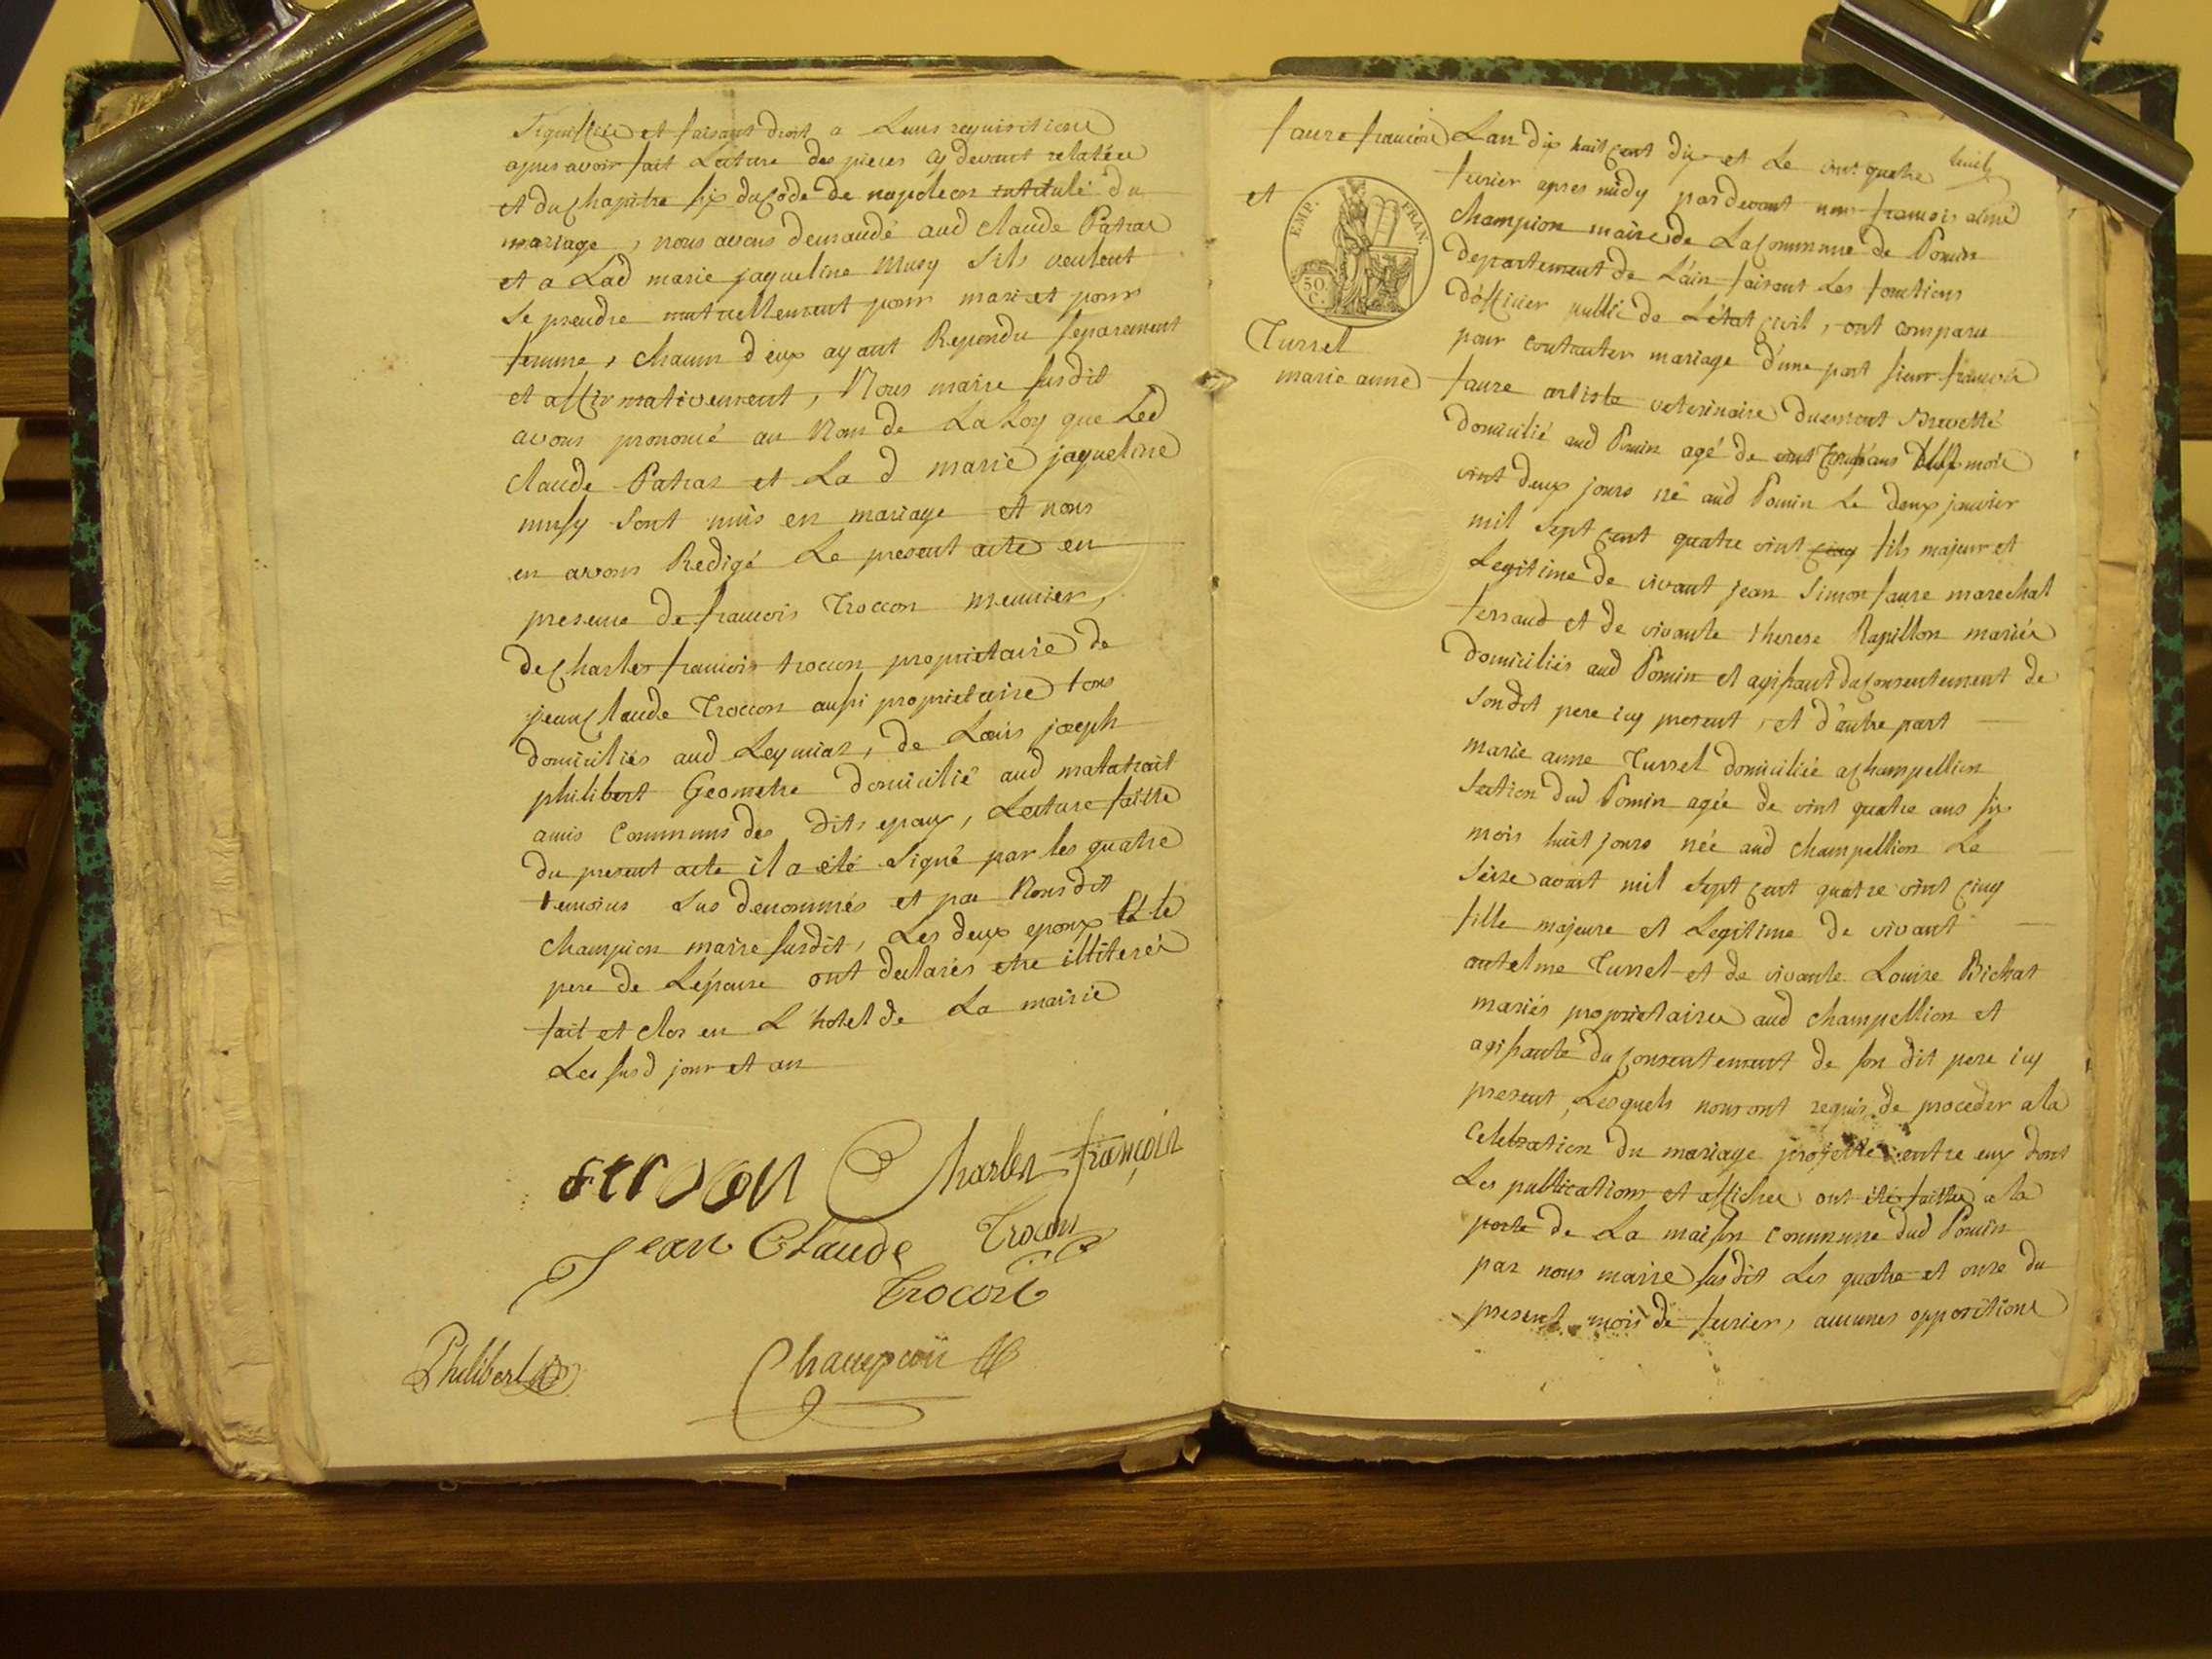 signiffiée et faisant droit a Leurs requisitions
apres avoir fait Lecture des pieces cy devant relatées
et du chapitre six du Code de napoleon intitulé du
mariage, nous avons demandé aud Claude Patras
et a Lad marie jaqueline Musy s'ils veulent
se prendre mutuellement pour mari et pour
femme, chacun d'eux ayant Repondu separement
et affirmativement, Nous maire susdit
avons prononcé au Nom de La Loy que Led
Claude Patras et La d marie jaqueline
musy sont unis en mariage et nous
en avons Redigé Le present acte en
presence de francois Troccon meunier,
de Charles francois troccon proprietaire de
jean Claude Troccon aussi proprietaire tous
domiciliés aud Leymiaz, de Louis joseph
philibert Geometre domicilié aud matatrait
amis Communs des dits epoux, Lecture faitte
du present acte il a été signé par les quatre
temoins sus denommés et par Nous dit
Champion maire susdit, Les deux epoux Et le
pere de L'épouse ont declarés etre illiterés
fait et clos en L'hotel de La mairie
Les susd jour et an
Charles françois
Jean Claude Trocon
Trocon
Philibert
Champion
faure francois
et
EMP. FRAN.
50 C.
Turrel
marie anne
L'an dix huit cent dix et Le vint quatre
fevrier apres midy par devant nous francois aimé
Champion maire de La Commune de Poncin
departement de L'ain faisant Les fonctions
d'officier public de L'état Civil, ont comparu
pour contracter mariage d'une part sieur francois
faure artiste veterinaire duement Brevetté
domicilié aud Poncin agé de vint ans mois
vint deux jours né aud Poncin Le deux janvier
mil sept cent quatre vint cinq fils majeur et
Legitime de vivant jean Simon faure marechal
ferrand et de vivante therese Rapillon mariés
domiciliés aud Poncin et agissant du Consentement de
son dit pere icy present, et d'autre part
marie anne Turrel domiciliée a Champellion
section dud Poncin agée de vint quatre ans six
mois huit jours née aud Champellion Le
seize aoust mil sept cent quatre vint cinq
fille majeure et Legitime de vivant
antelme Turrel et de vivante Louise Bichat
mariés proprietaires aud Champellion et
agissante du Consentement de son dit pere icy
present, Lesquels nous ont requis de proceder a la
Celebration du mariage projetté entre eux dont
Les publications et affiches ont été faittes a la
porte de La maison Commune dud Poncin
par nous maire susdit Les quatre et onze du
present mois de fevrier, aucunes oppositions